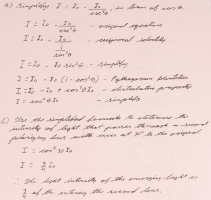 a) Simplify I = I₀ - I₀/csc²θ in terms of cos θ.
I = I₀ - I₀/csc²θ - original equation
I = I₀ - I₀/(1/sin²θ) - reciprocal identity
I = I₀ - I₀ sin²θ - simplify
I = I₀ - I₀ (1 - cos²θ) - Pythagorean
I = I₀ - I₀ + I₀ cos²θ - distributive property
I = cos²θ I₀ - simplify
Use the simplified formula to determine the
intensity of light that passes through a second
polarizing lens with axis at 30° to the original.
I = cos²30 I₀
I = 3/4 I₀
∴ The light intensity of the emerging light is
3/4 of the the second lens.